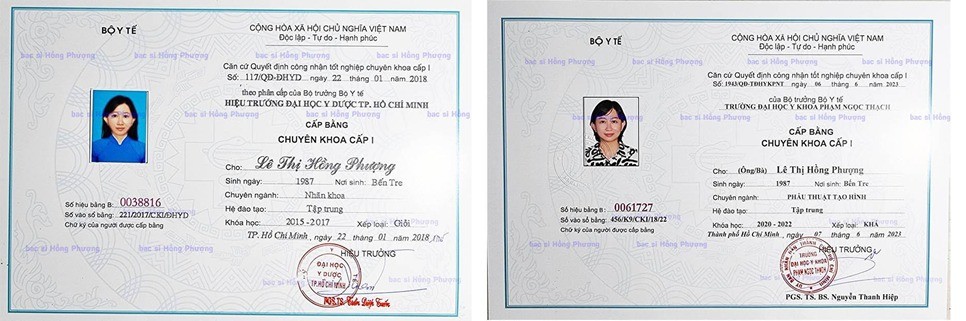 BỘ Y TẾ
CỘNG HÒA XÃ HỘI CHỦ NGHĨA VIỆT NAM
Độc lập - Tự do - Hạnh phúc
bac si Hồng Phượng
Căn cứ Quyết định công nhận tốt nghiệp chuyên khoa cấp I
Số: 117/QĐ-ĐHYD ngày 22 tháng 01 năm 2018
theo phân cấp của Bộ trưởng Bộ Y tế
HIỆU TRƯỞNG ĐẠI HỌC Y DƯỢC TP. HỒ CHÍ MINH
CẤP BẰNG
CHUYÊN KHOA CẤP I
Cho: Lê Thị Hồng Phượng
Sinh ngày: 1987 Nơi sinh: Bến Tre
Chuyên ngành: Nhãn khoa
Hệ đào tạo: Tập trung
Khóa học: 2015 - 2017 Xếp loại: Giỏi
TP. Hồ Chí Minh, ngày 22 tháng 01 năm 2018
HIỆU TRƯỞNG
Số hiệu bằng B: 0038816
Số vào sổ bằng: 221/2017/CKI/ĐHYD
Chữ ký của người được cấp bằng
ĐẠI HỌC
Y DƯỢC
TP.HỒ CHÍ MINH
PGS.TS. Trần Diệp Tuấn
BỘ Y TẾ
CỘNG HÒA XÃ HỘI CHỦ NGHĨA VIỆT NAM
Độc lập - Tự do - Hạnh phúc
bac si Hồng Phượng
Căn cứ Quyết định công nhận tốt nghiệp chuyên khoa cấp I
Số: 1943/QĐ-TĐHYKPNT ngày 06 tháng 6 năm 2023
của Bộ trưởng Bộ Y tế
TRƯỜNG ĐẠI HỌC Y KHOA PHẠM NGỌC THẠCH
CẤP BẰNG
CHUYÊN KHOA CẤP I
Cho: (Ông/Bà) Lê Thị Hồng Phượng
Sinh ngày: 1987 Nơi sinh: Bến Tre
Chuyên ngành: PHẪU THUẬT TẠO HÌNH
Hệ đào tạo: Tập trung
Khóa học: 2020 - 2022 Xếp loại: KHÁ
Thành phố Hồ Chí Minh, ngày 07 tháng 6 năm 2023
HIỆU TRƯỞNG
Số hiệu bằng B: 0061727
Số vào sổ bằng: 456/K9/CKI/18/22
Chữ ký của người được cấp bằng
TRƯỜNG
ĐẠI HỌC Y KHOA
PHẠM NGỌC THẠCH
PGS. TS. BS. Nguyễn Thanh Hiệp